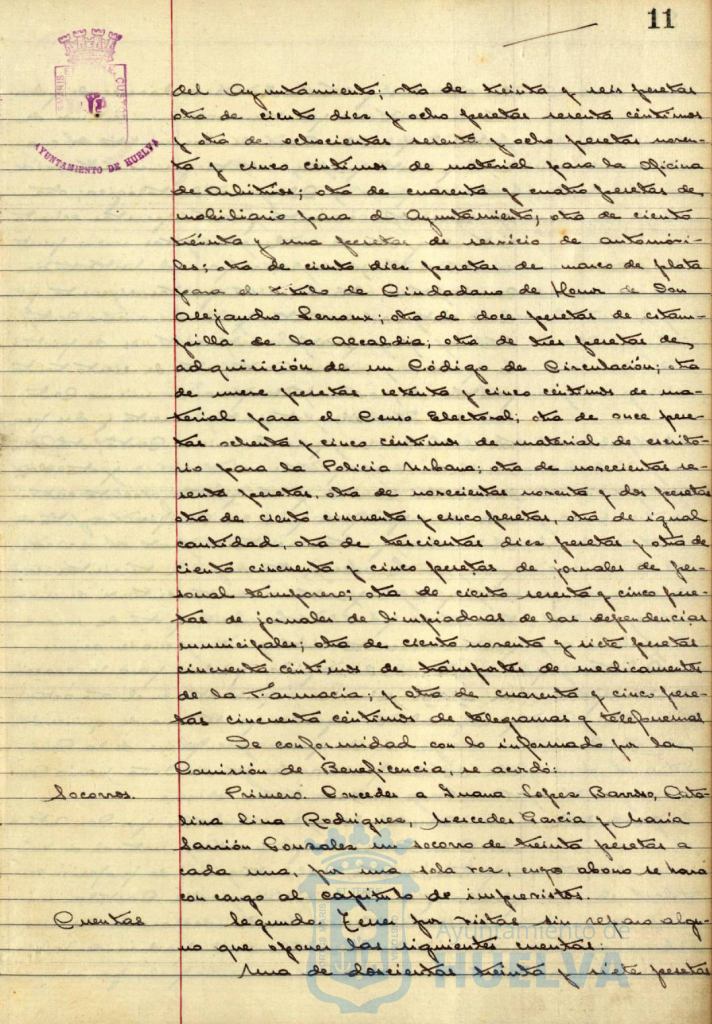 11
AYUNTAMIENTO DE HUELVA
del Ayuntamiento; otra de treinta y seis pesetas
otra de ciento diez y ocho pesetas sesenta céntimos
y otra de ochocientas sesenta y ocho pesetas noven-
ta y cinco céntimos de material para la Oficina
de Arbitrios; otra de cuarenta y cuatro pesetas de
mobiliario para el Ayuntamiento; otra de ciento
treinta y una pesetas de servicio de automóvi-
les; otra de ciento diez pesetas de marco de plata
para el Título de Ciudadano de Honor de Don
Alejandro Lerroux; otra de doce pesetas de estam-
pilla de la Alcaldía; otra de tres pesetas de
adquisición de un Código de Circulación; otra
de nueve pesetas setenta y cinco céntimos de ma-
terial para el Censo Electoral; otra de once pese-
tas ochenta y cinco céntimos de material de escrito-
rio para la Policía Urbana; otra de novecientas se-
senta pesetas, otra de novecientas noventa y dos pesetas
otra de ciento cincuenta y cinco pesetas, otra de igual
cantidad, otra de trescientas diez pesetas y otra de
ciento cincuenta y cinco pesetas de jornales de per-
sonal temporero; otra de ciento sesenta y cinco pese-
tas de jornales de limpiadoras de las dependencias
municipales; otra de ciento noventa y siete pesetas
cincuenta céntimos de transportes de medicamentos
de la Farmacia; y otra de cuarenta y cinco pese-
tas cincuenta céntimos de telegramas y telefonemas
De conformidad con lo informado por la
Comisión de Beneficencia, se acordó:
Socorros.
Primero. Conceder a Juana López Barroso, Cata-
lina Lina Rodríguez, Mercedes García y María
Carrión González un socorro de treinta pesetas a
cada una, por una sola vez, cuyo abono se hará
con cargo al capítulo de imprevistos.
Cuentas
Segundo. Tener por vistas sin reparo algu-
no que oponer las siguientes cuentas:
Una de doscientas treinta y siete pesetas
Ayuntamiento de
HUELVA